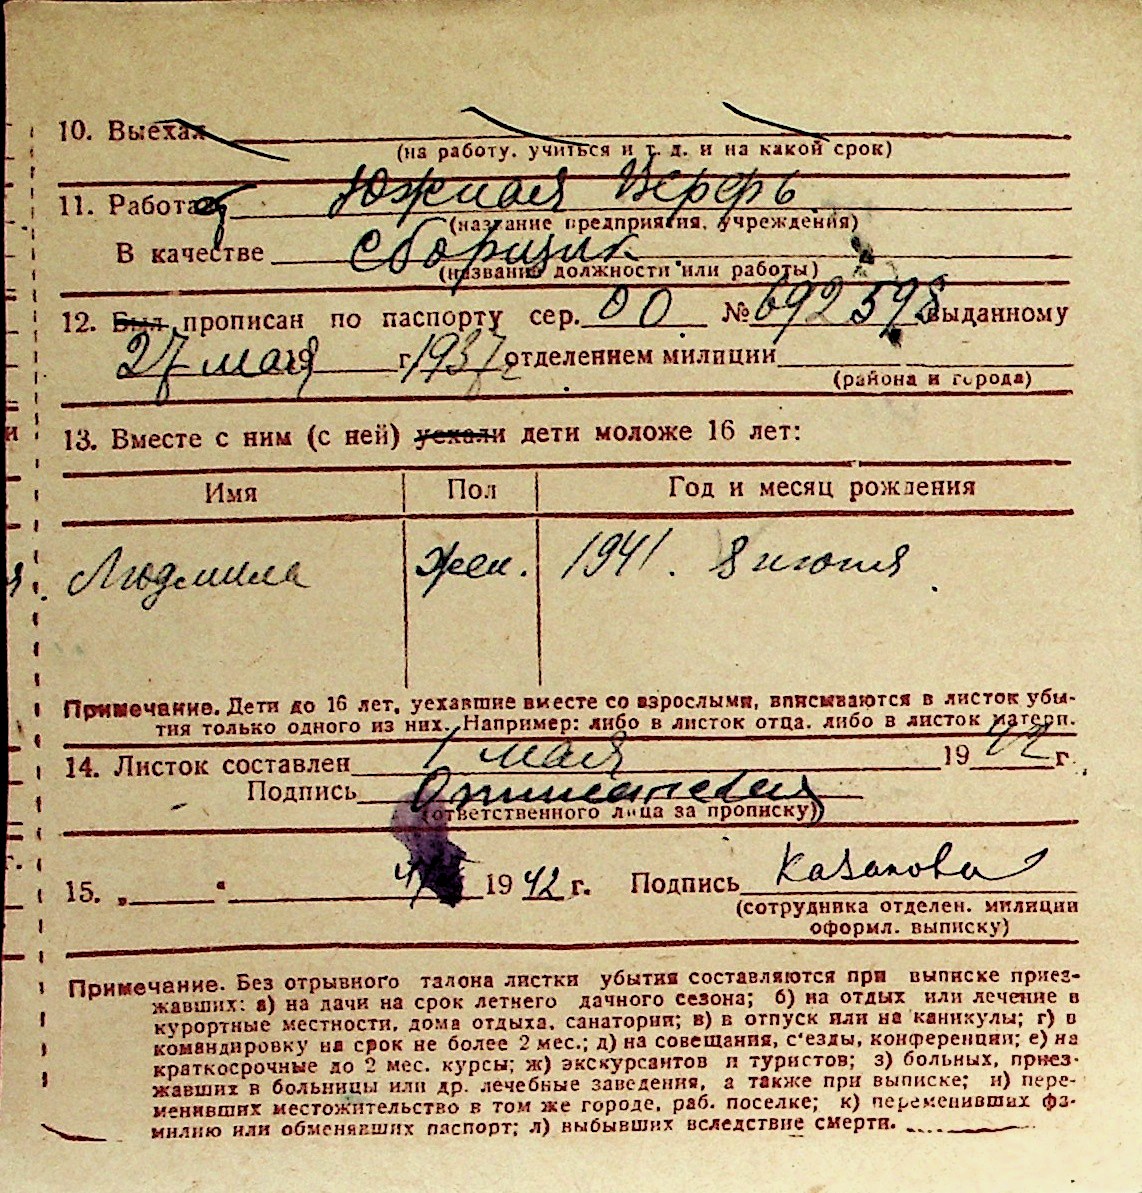 10. Выехал
(на работу, учиться и т. д. и на какой срок)
11. Работал Южная Верфь
(название предприятия, учреждения)
В качестве Сборщик
(название должности или работы)
12. Был прописан по паспорту сер. 00 № 692598 выданному
27 мая г. 1937 г. отделением милиции
(района и города)
13. Вместе с ним (с ней) уехали дети моложе 16 лет:
Имя Пол Год и месяц рождения
Людмила жен. 1941. 8 июня
Примечание. Дети до 16 лет, уехавшие вместе со взрослыми, вписываются в листок убы-
тия только одного из них. Например: либо в листок отца, либо в листок матери.
14. Листок составлен 1 мая 1942 г.
Подпись
(ответственного лица за прописку)
15. „ “ 1942 г. Подпись Казакова
(сотрудника отделен. милиции
оформл. выписку)
Примечание. Без отрывного талона листки убытия составляются при выписке приез-
жавших: а) на дачи на срок летнего дачного сезона; б) на отдых или лечение в
курортные местности, дома отдыха, санатории; в) в отпуск или на каникулы; г) в
командировку на срок не более 2 мес.; д) на совещания, с'езды, конференции; е) на
краткосрочные до 2 мес. курсы; ж) экскурсантов и туристов; з) больных, приез-
жавших в больницы или др. лечебные заведения, а также при выписке; и) пере-
менивших местожительство в том же городе, раб. поселке; к) переменивших фа-
милию или обменявших паспорт; л) выбывших вследствие смерти.